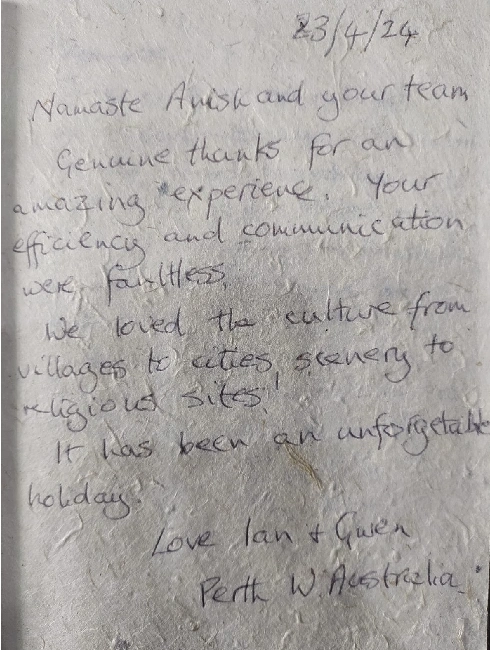 23/4/24
Namaste Anish and your team
Genuine thanks for an
amazing experience. Your
efficiency and communication
were faultless.
We loved the culture from
villages to cities scenery to
religious sites!
It has been an unforgetable
holiday.
Love Ian + Gwen
Perth W. Australia.